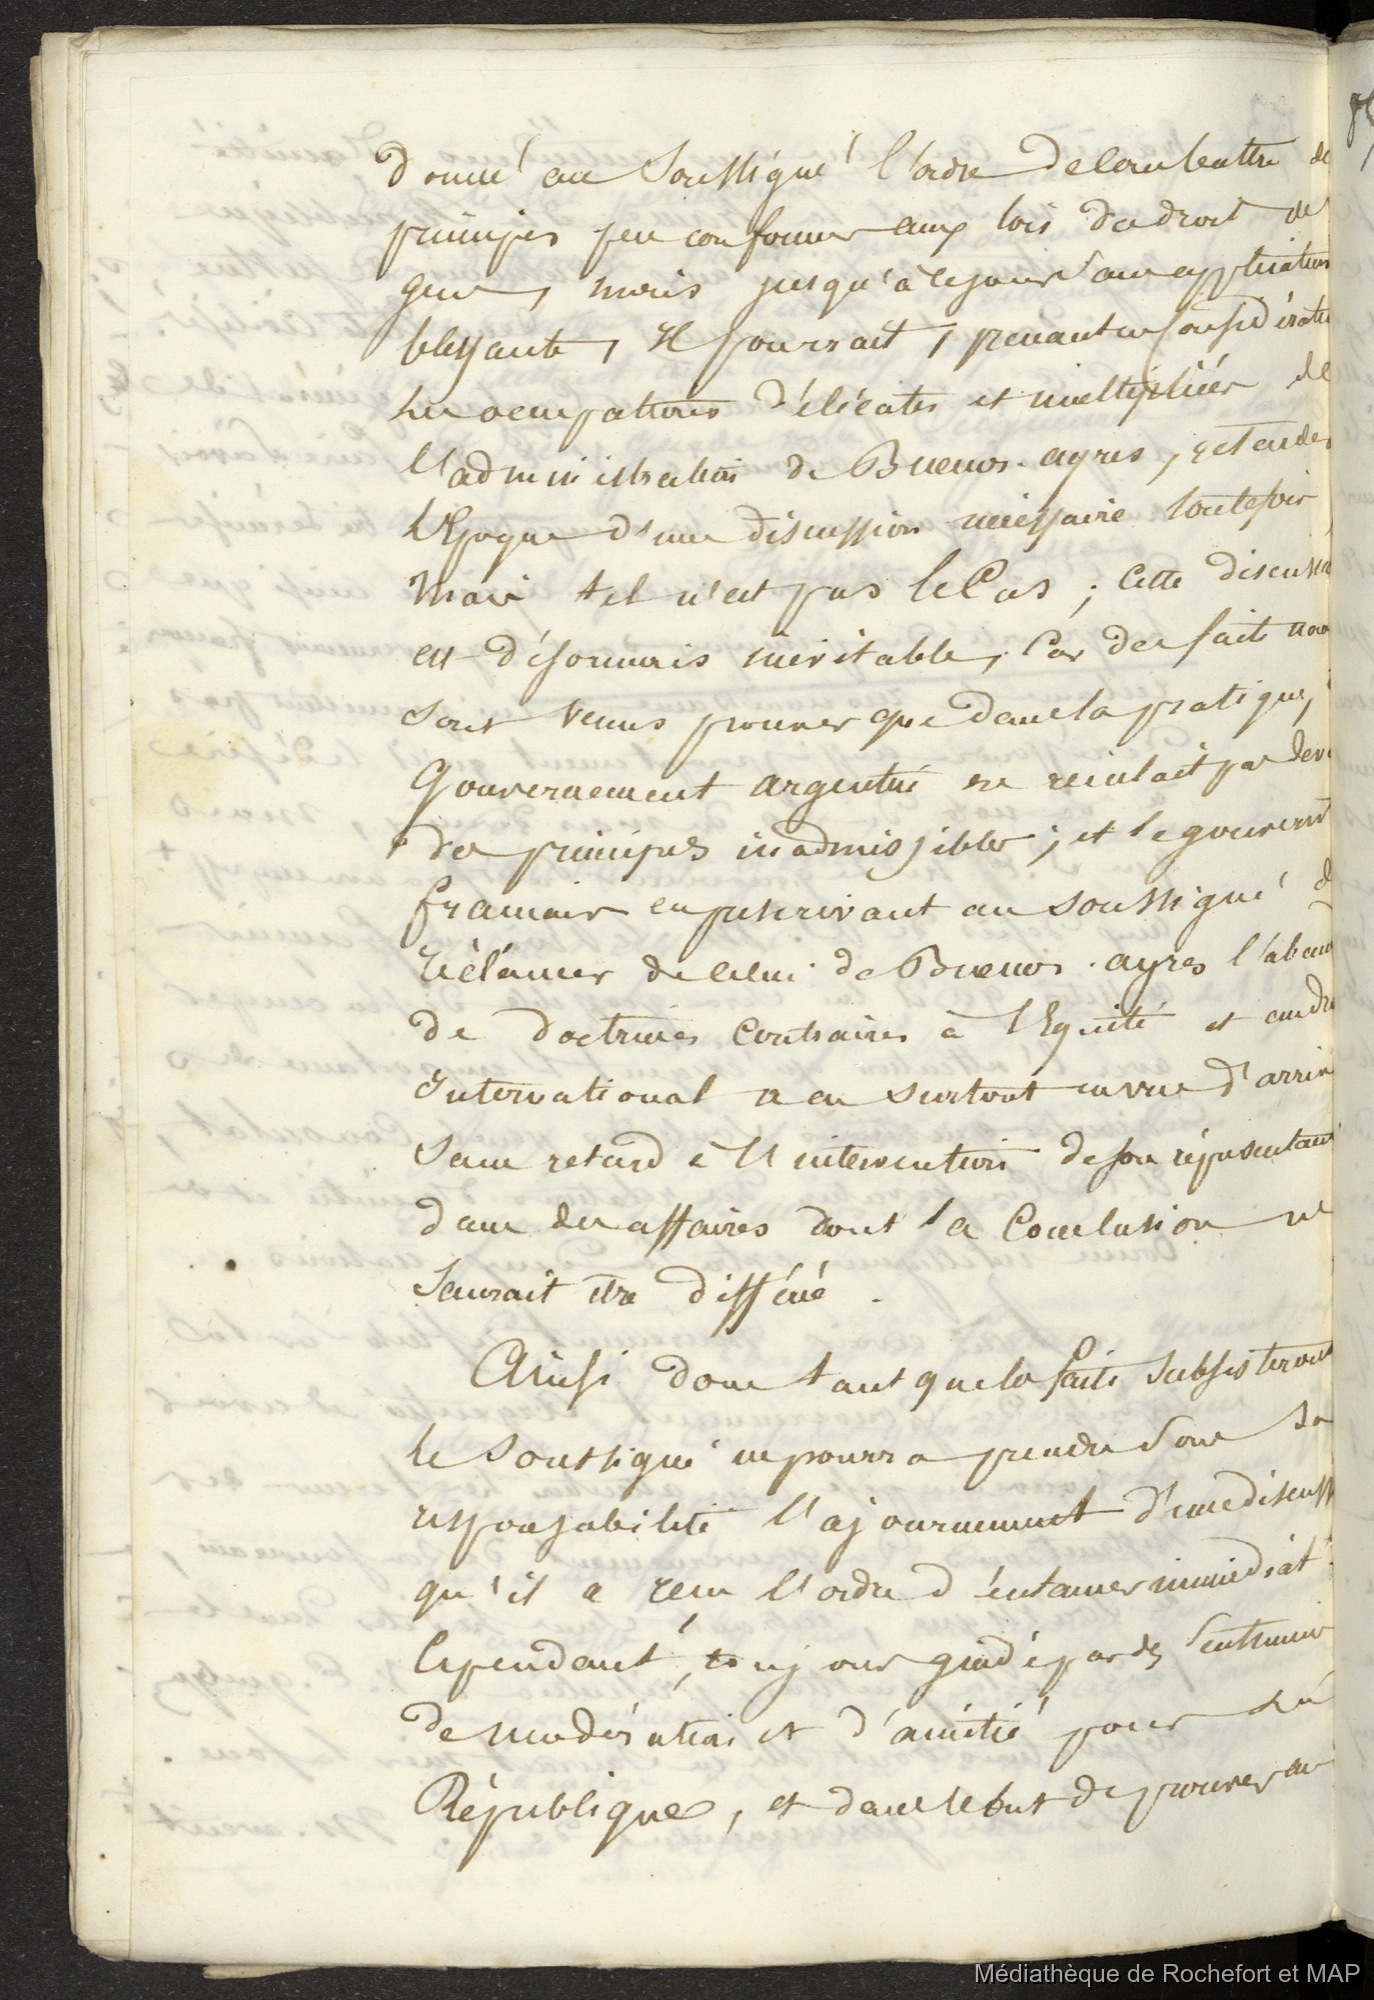 donné au Soussigné l'ordre de combattre de
principes peu conformes aux lois du droit de
gens, mais jusqu'à ce jour sans application
blessante, Il pourrait, prenant en Considérati
les occupations délicates et multipliées de
l'administration de Buenos-ayres, retarder
l'Epoque d'une discussion nécessaire toutefois
Mais tel n'est pas le Cas ; Cette discussi
est désormais inévitable, Car des faits nou
sont venus prouver que dans la pratique,
Gouvernement argentin ne reculait pas dev
des principes inadmissibles ; et le gouvernt
français en prescrivant au soussigné d
réclamer de celui de Buenos-ayres l'aban
de doctrines Contraires à l'Equité et au dr
International a eu surtout en vue d'arriv
Sans retard à l'intervention de son représentant
dans des affaires dont la Conclusion ne
Saurait être différée.
Ainsi donc tant que les faits Subsisteront
le Soussigné ne pourra prendre sous sa
responsabilité l'ajournement d'une discuss
qu'il a reçu l'ordre d'entamer immédiat
Cependant, toujours guidé par des Sentiments
de modération et d'amitié pour la
République, et dans le but de prouver au
Médiathèque de Rochefort et MAP